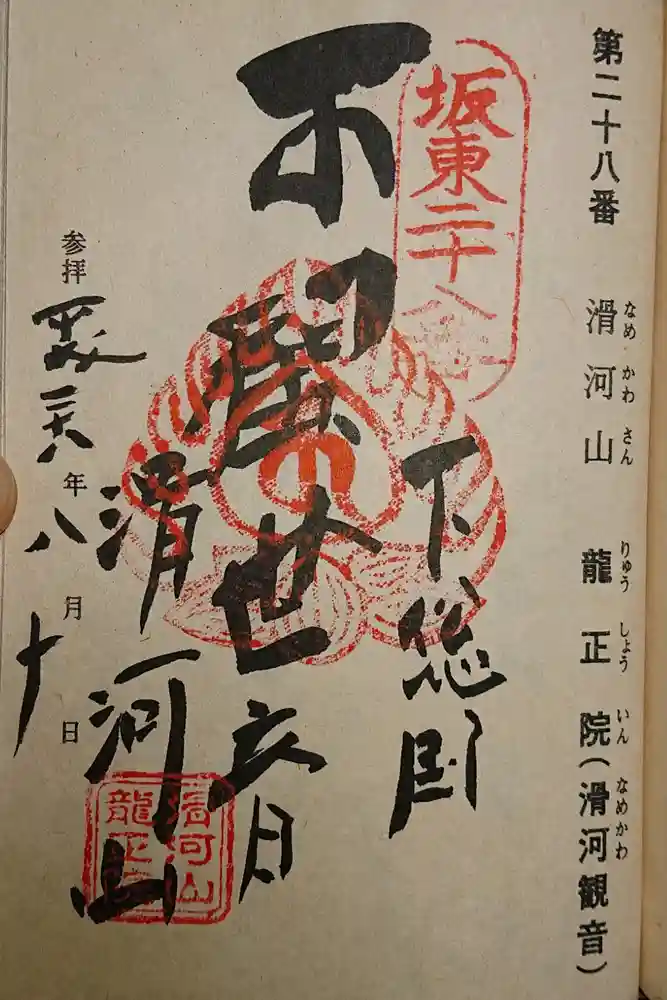 第二十八番 滑河山 龍正院(滑河観音)
なめかわさん りゅうしょういん なめかわ
坂東二十八
下総国
世
滑河山
参拝 年八月十日
滑河山
龍正